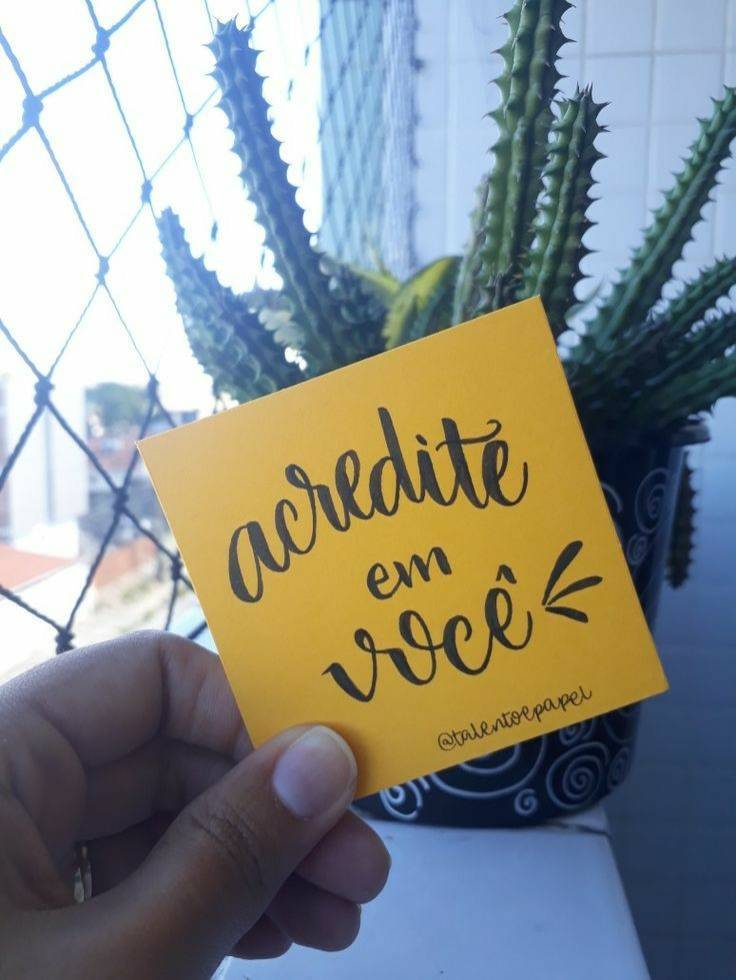 acredite
em
você
@talentoepapel